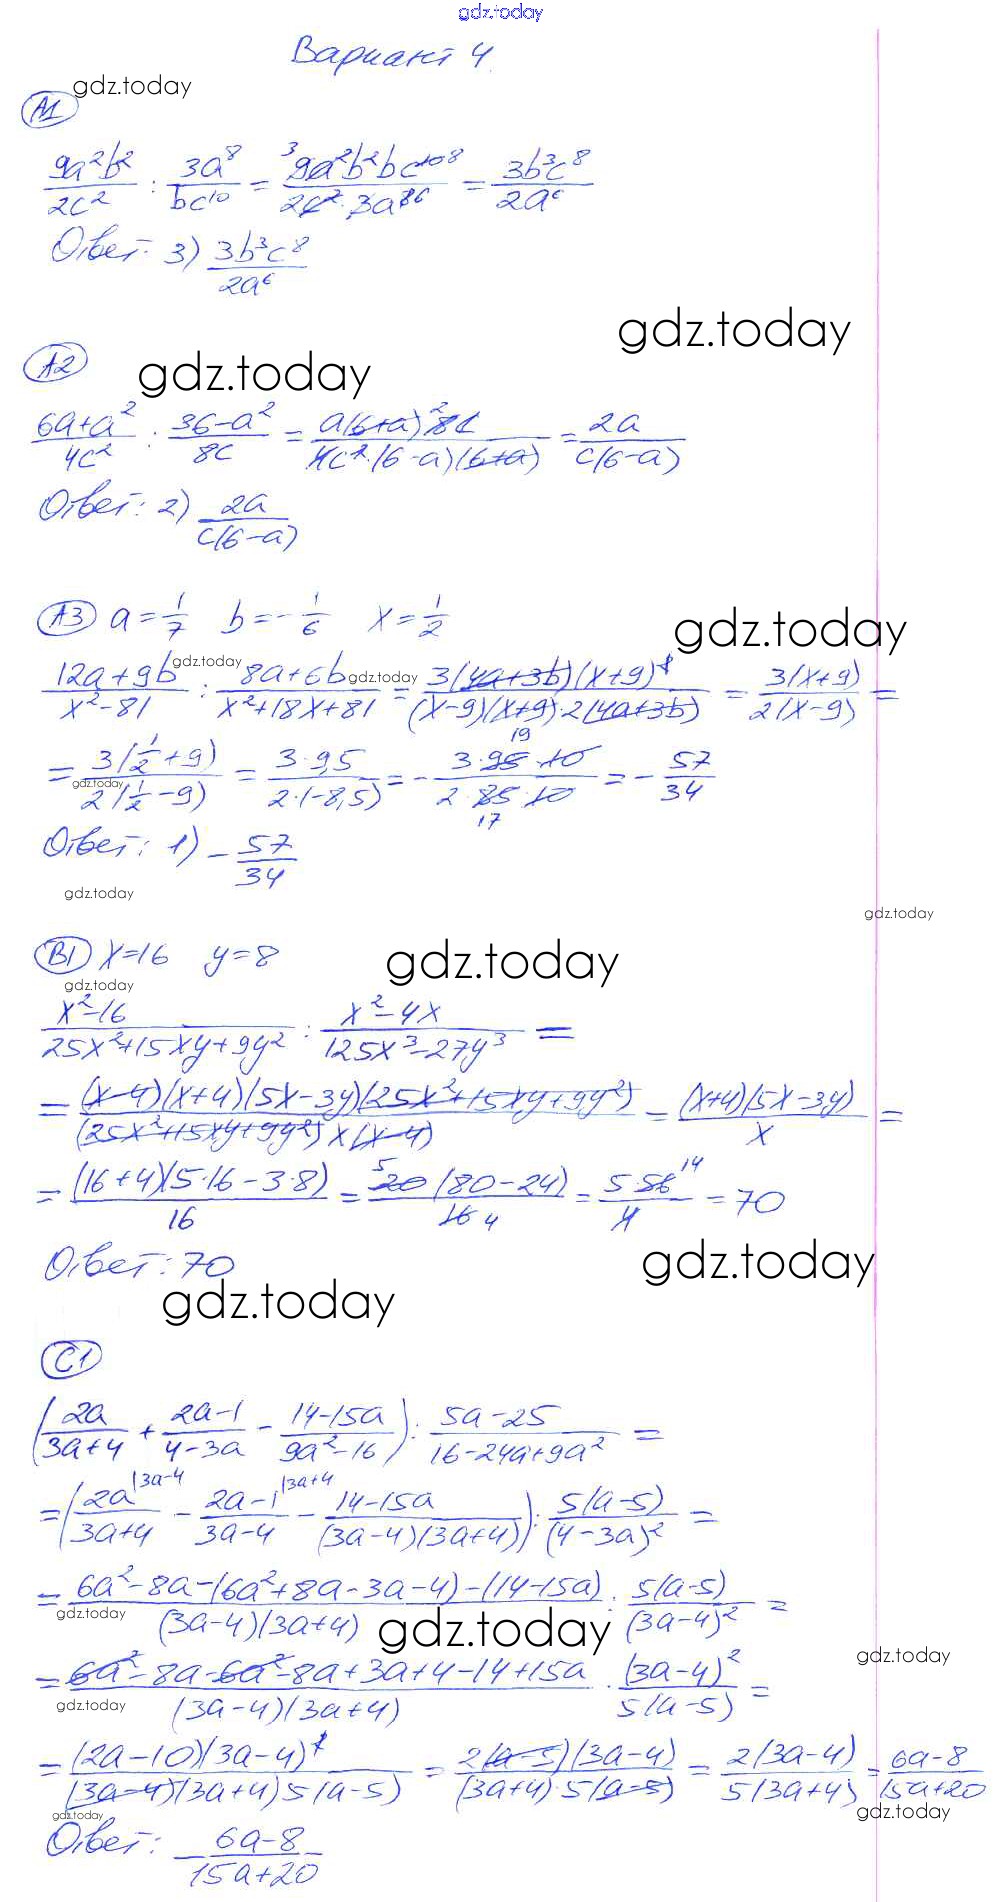 gdz.today
Вариант 4.
gdz.today
А1
9a²b²/2c² : 3a⁸/bc¹⁰ = ³9a²b²bc¹⁰ ⁸/2c²·3a⁸ ⁶ = 3b³c⁸/2a⁶
Ответ: 3) 3b³c⁸/2a⁶
gdz.today
А2 gdz.today
6a+a²/4c² : 36-a²/8c = a(6+a) ²8c/4c²·(6-a)(6+a) = 2a/c(6-a)
Ответ: 2) 2a/c(6-a)
А3 a=1/7 b=-1/6 x=1/2 gdz.today
gdz.today gdz.today
12a+9b/x²-81 : 8a+6b/x²+18x+81 = 3(4a+3b)(x+9)²/(x-9)(x+9)·2(4a+3b) = 3(x+9)/2(x-9) =
= 3(1/2+9)/2(1/2-9) = 3·9,5/2·(-8,5) = - 3·95·10/2·85·10 = - 57/34
19
17
gdz.today
Ответ: 1) - 57/34
gdz.today
gdz.today
В1 x=16 y=8 gdz.today
gdz.today
x²-16/25x²+15xy+9y² : x²-4x/125x³-27y³ =
= (x-4)(x+4)(5x-3y)(25x²+15xy+9y²)/(25x²+15xy+9y²)x(x-4) = (x+4)(5x-3y)/x =
= (16+4)(5·16-3·8)/16 = ⁵20(80-24)/16 4 = 5·56 ¹⁴/4 = 70
Ответ: 70 gdz.today
gdz.today
С1
(2a/3a+4 + 2a-1/4-3a - 14-15a/9a²-16) : 5a-25/16-24a+9a² =
= (2a|3a-4/3a+4 - 2a-1|3a+4/3a-4 - 14-15a/(3a-4)(3a+4)) : 5(a-5)/(4-3a)² =
= 6a²-8a-(6a²+8a-3a-4)-(14-15a)/(3a-4)(3a+4) : 5(a-5)/(3a-4)² =
gdz.today gdz.today
gdz.today
= 6a²-8a-6a²-8a+3a+4-14+15a/(3a-4)(3a+4) · (3a-4)²/5(a-5) =
gdz.today
= (2a-10)(3a-4)²/(3a-4)(3a+4)5(a-5) = 2(a-5)(3a-4)/(3a+4)·5(a-5) = 2(3a-4)/5(3a+4) = 6a-8/15a+20
gdz.today gdz.today
Ответ: 6a-8/15a+20